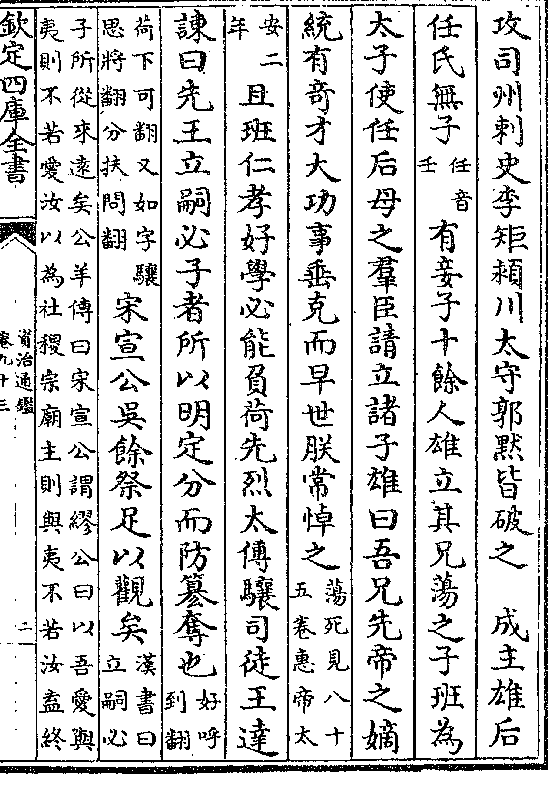 攻司州刺史李矩潁川太守郭黙皆破之　成主雄后
任氏無子任音壬有妾子十餘人雄立其兄蕩之子班為
太子使任后母之羣臣請立諸子雄曰吾兄先帝之嫡
統有奇才大功事垂克而早世朕常悼之蕩死見八十五卷惠帝太
安二年且班仁孝好學必能負荷先烈太傅驤司徒王達
諫曰先王立嗣必子者所以明定分而防簒奪也好呼到翻
荷下可翻又如字驤思將翻分扶問翻宋宣公吳餘祭足以觀矣漢書曰立嗣必
子所從來遠矣公羊傳曰宋宣公謂繆公曰以吾愛與
夷則不若愛汝以為社稷宗廟主則與夷不若汝盍終
欽定四庫全書
資治通鑑
卷九十三
二